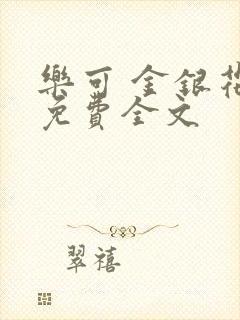 樂可 金銀花
免費全文
翠禧